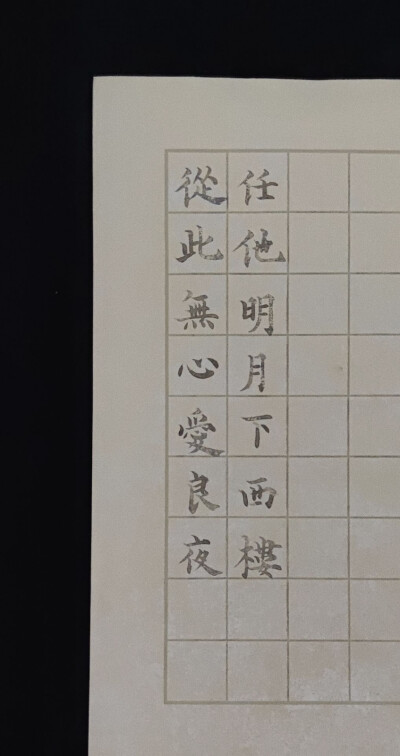 從此無心愛良夜
任他明月下西樓